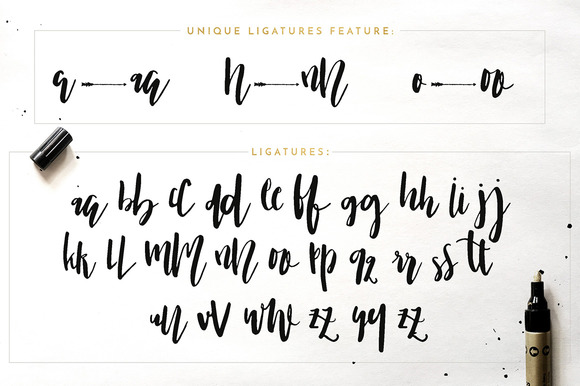 UNIQUE LIGATURES FEATURE:
a aa n nn o oo
LIGATURES:
aa bb cc dd ee ff gg hh ii jj
kk LL mm nn oo pp qz rr ss tt
uu vv ww zz yy zz